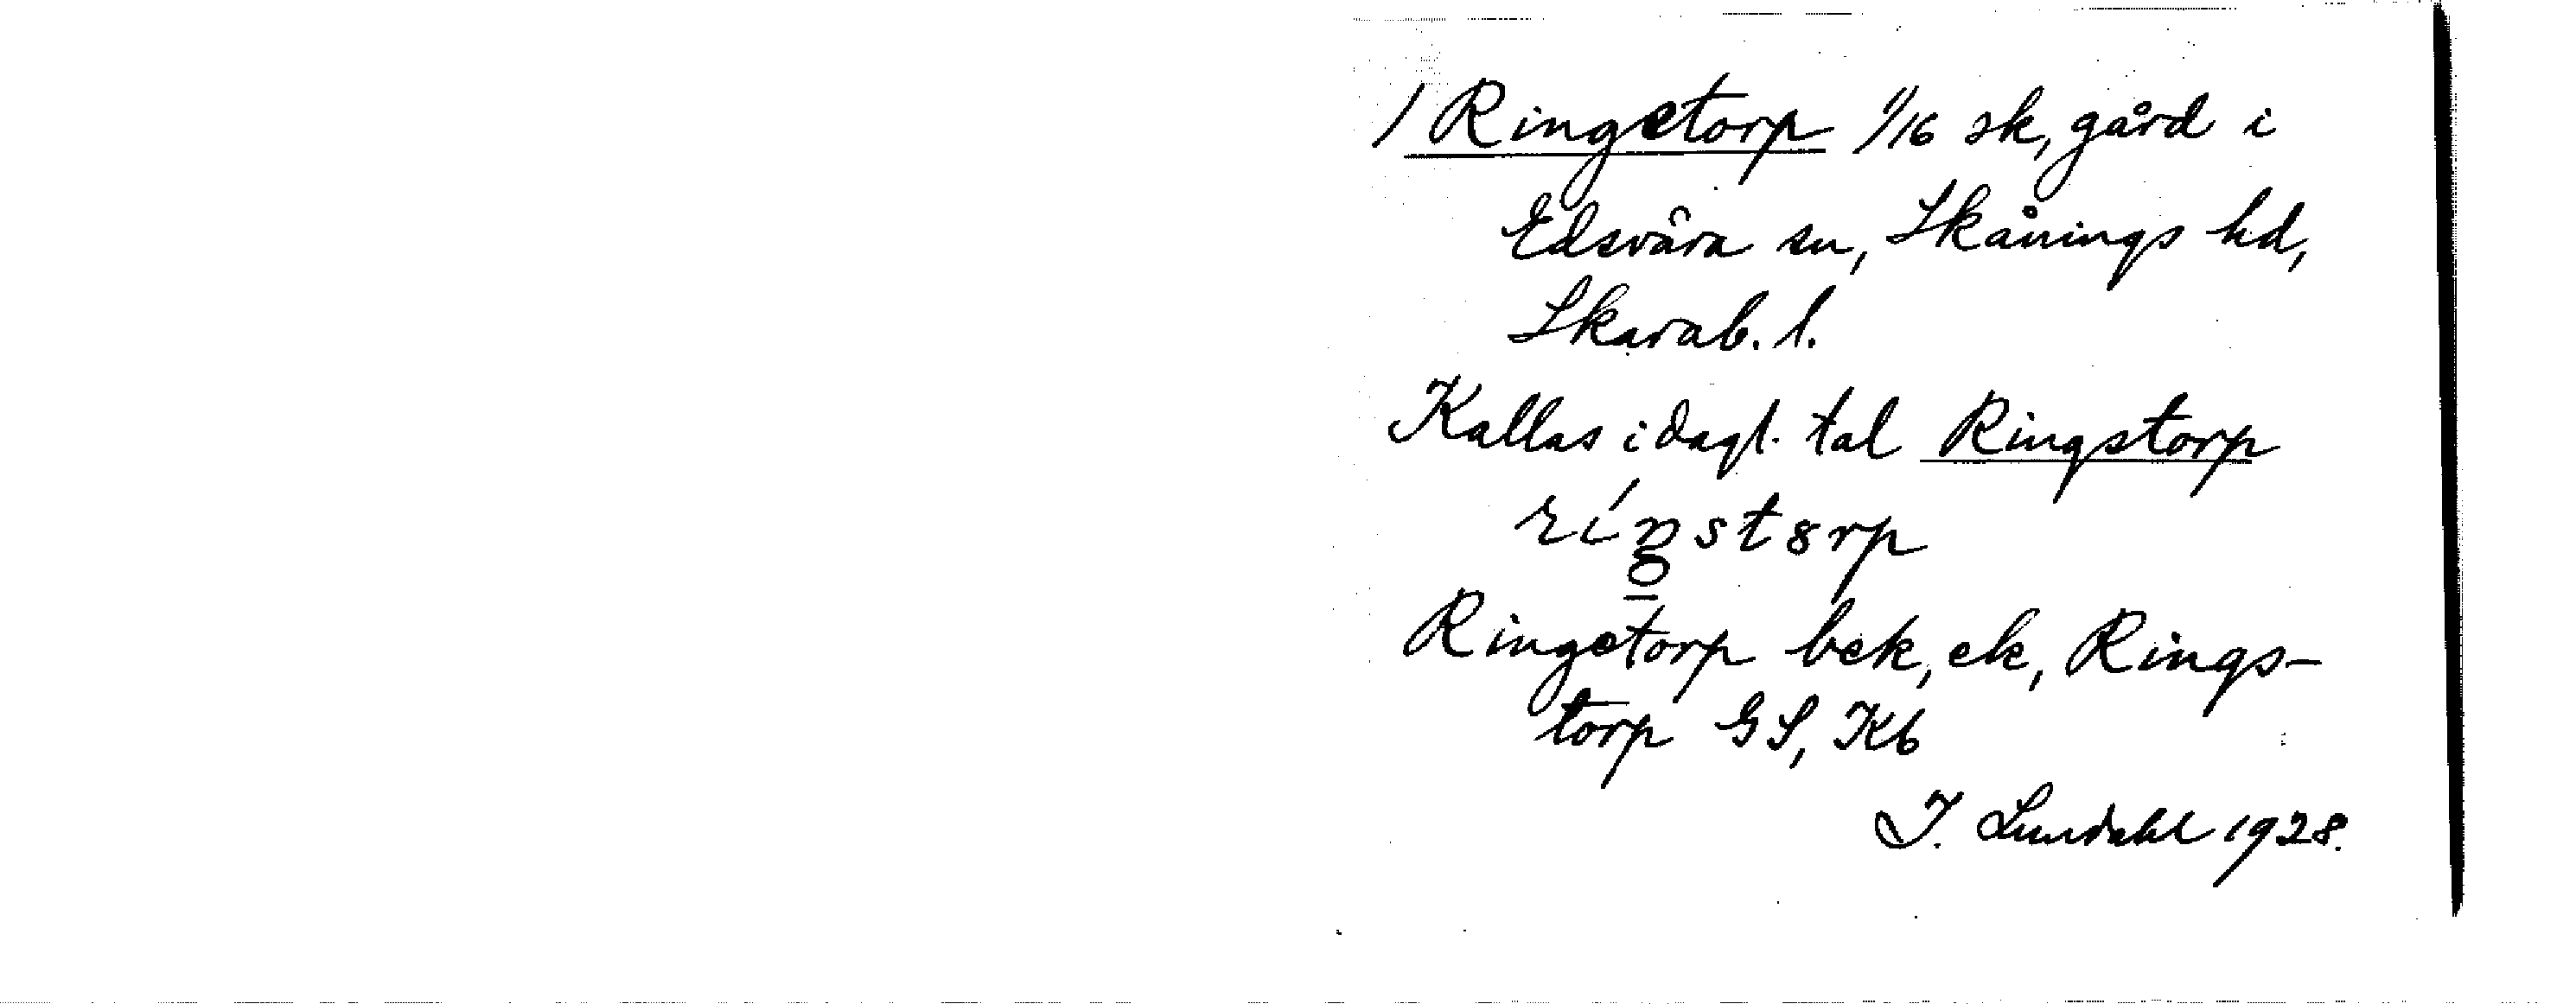 / Ringetorp 1/16 sk, gård i
Edsvära sn, Skånings hd,
Skarab. l.
Kallas i dagl. tal Ringstorp
ríŋstȣrp
Ringetorp bek, ek, Rings-
torp GS, Kb
I. Lundahl 1928.